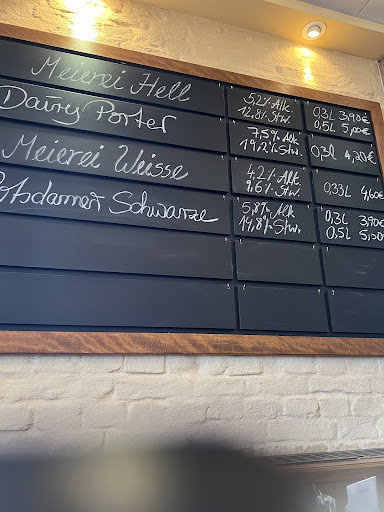 Meierei Hell 5,2% Alk. 0,3L 3,90€
12,8% Stw. 0,5L 5,00€
Dairy Porter 7,5% Alk. 0,3L 4,20€
19,2% Stw.
Meierei Weisse 4,2% Alk. 0,33L 4,60€
9,6% Stw.
Potsdamer Schwarze 5,8% Alk 0,3L 3,90€
14,8% Stw. 0,5L 5,50€